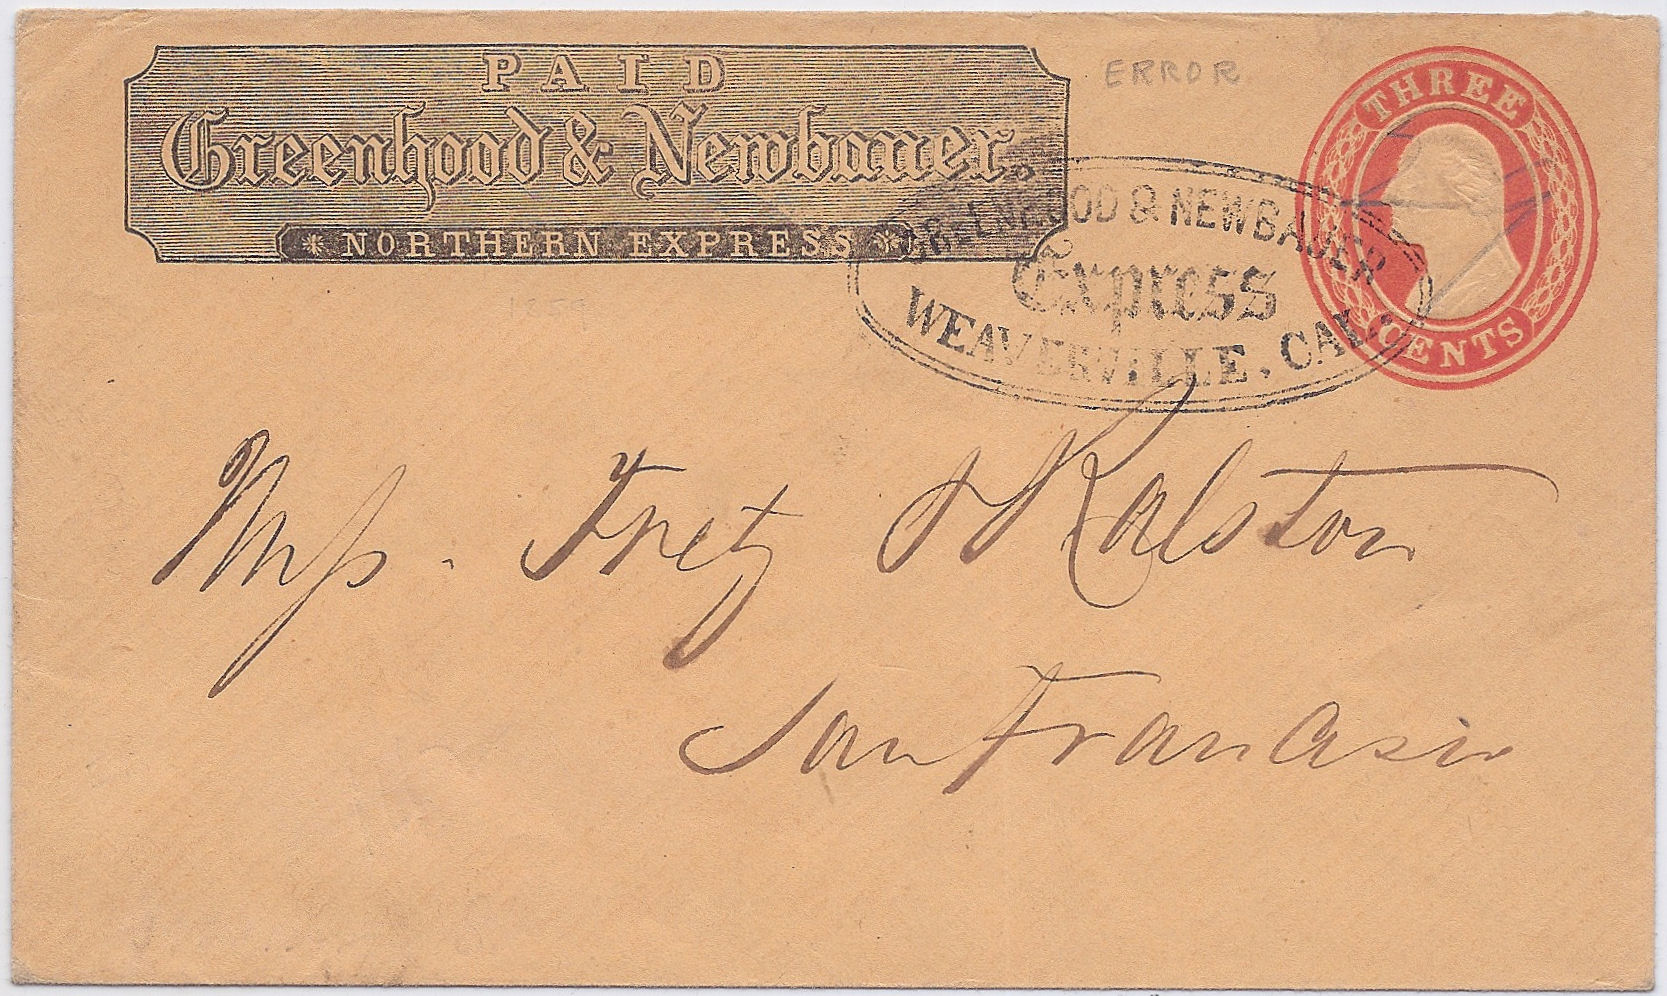 PAID
Greenhood & Newbauer
NORTHERN EXPRESS
ERROR
THREE
CENTS
GREENHOOD & NEWBAUER
Express
WEAVERVILLE, CAL.
1859
Fretz & Ralston
San Francisco